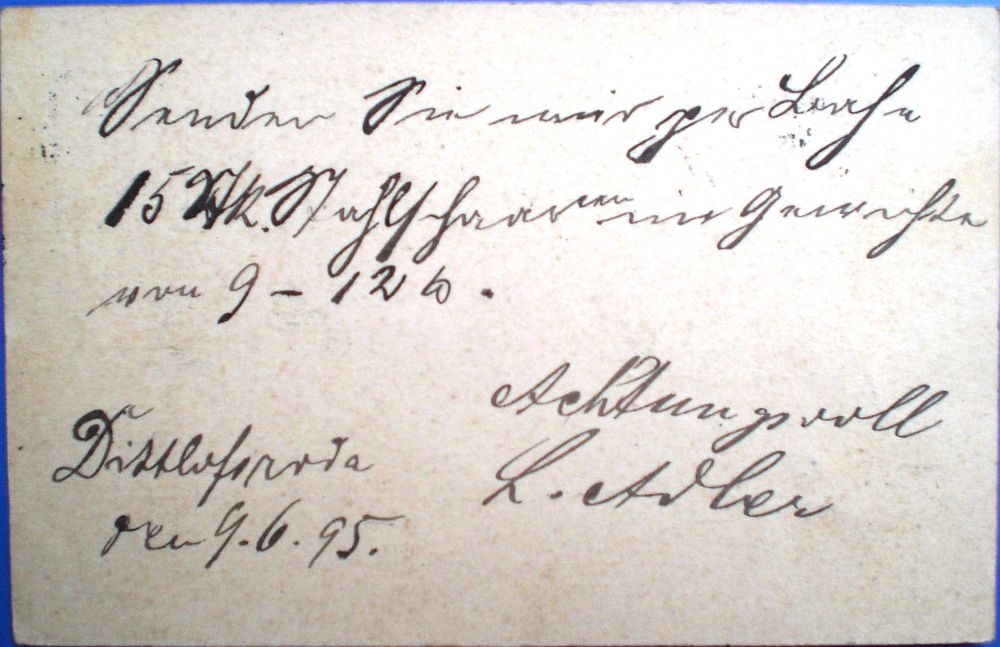 Senden Sie mir per Bahn
15 Stk. Stahlschaaren im Gewichte
von 9 – 12 ℔.
Achtungsvoll
L. Adler
Dittlofsroda
den 9.6.95.